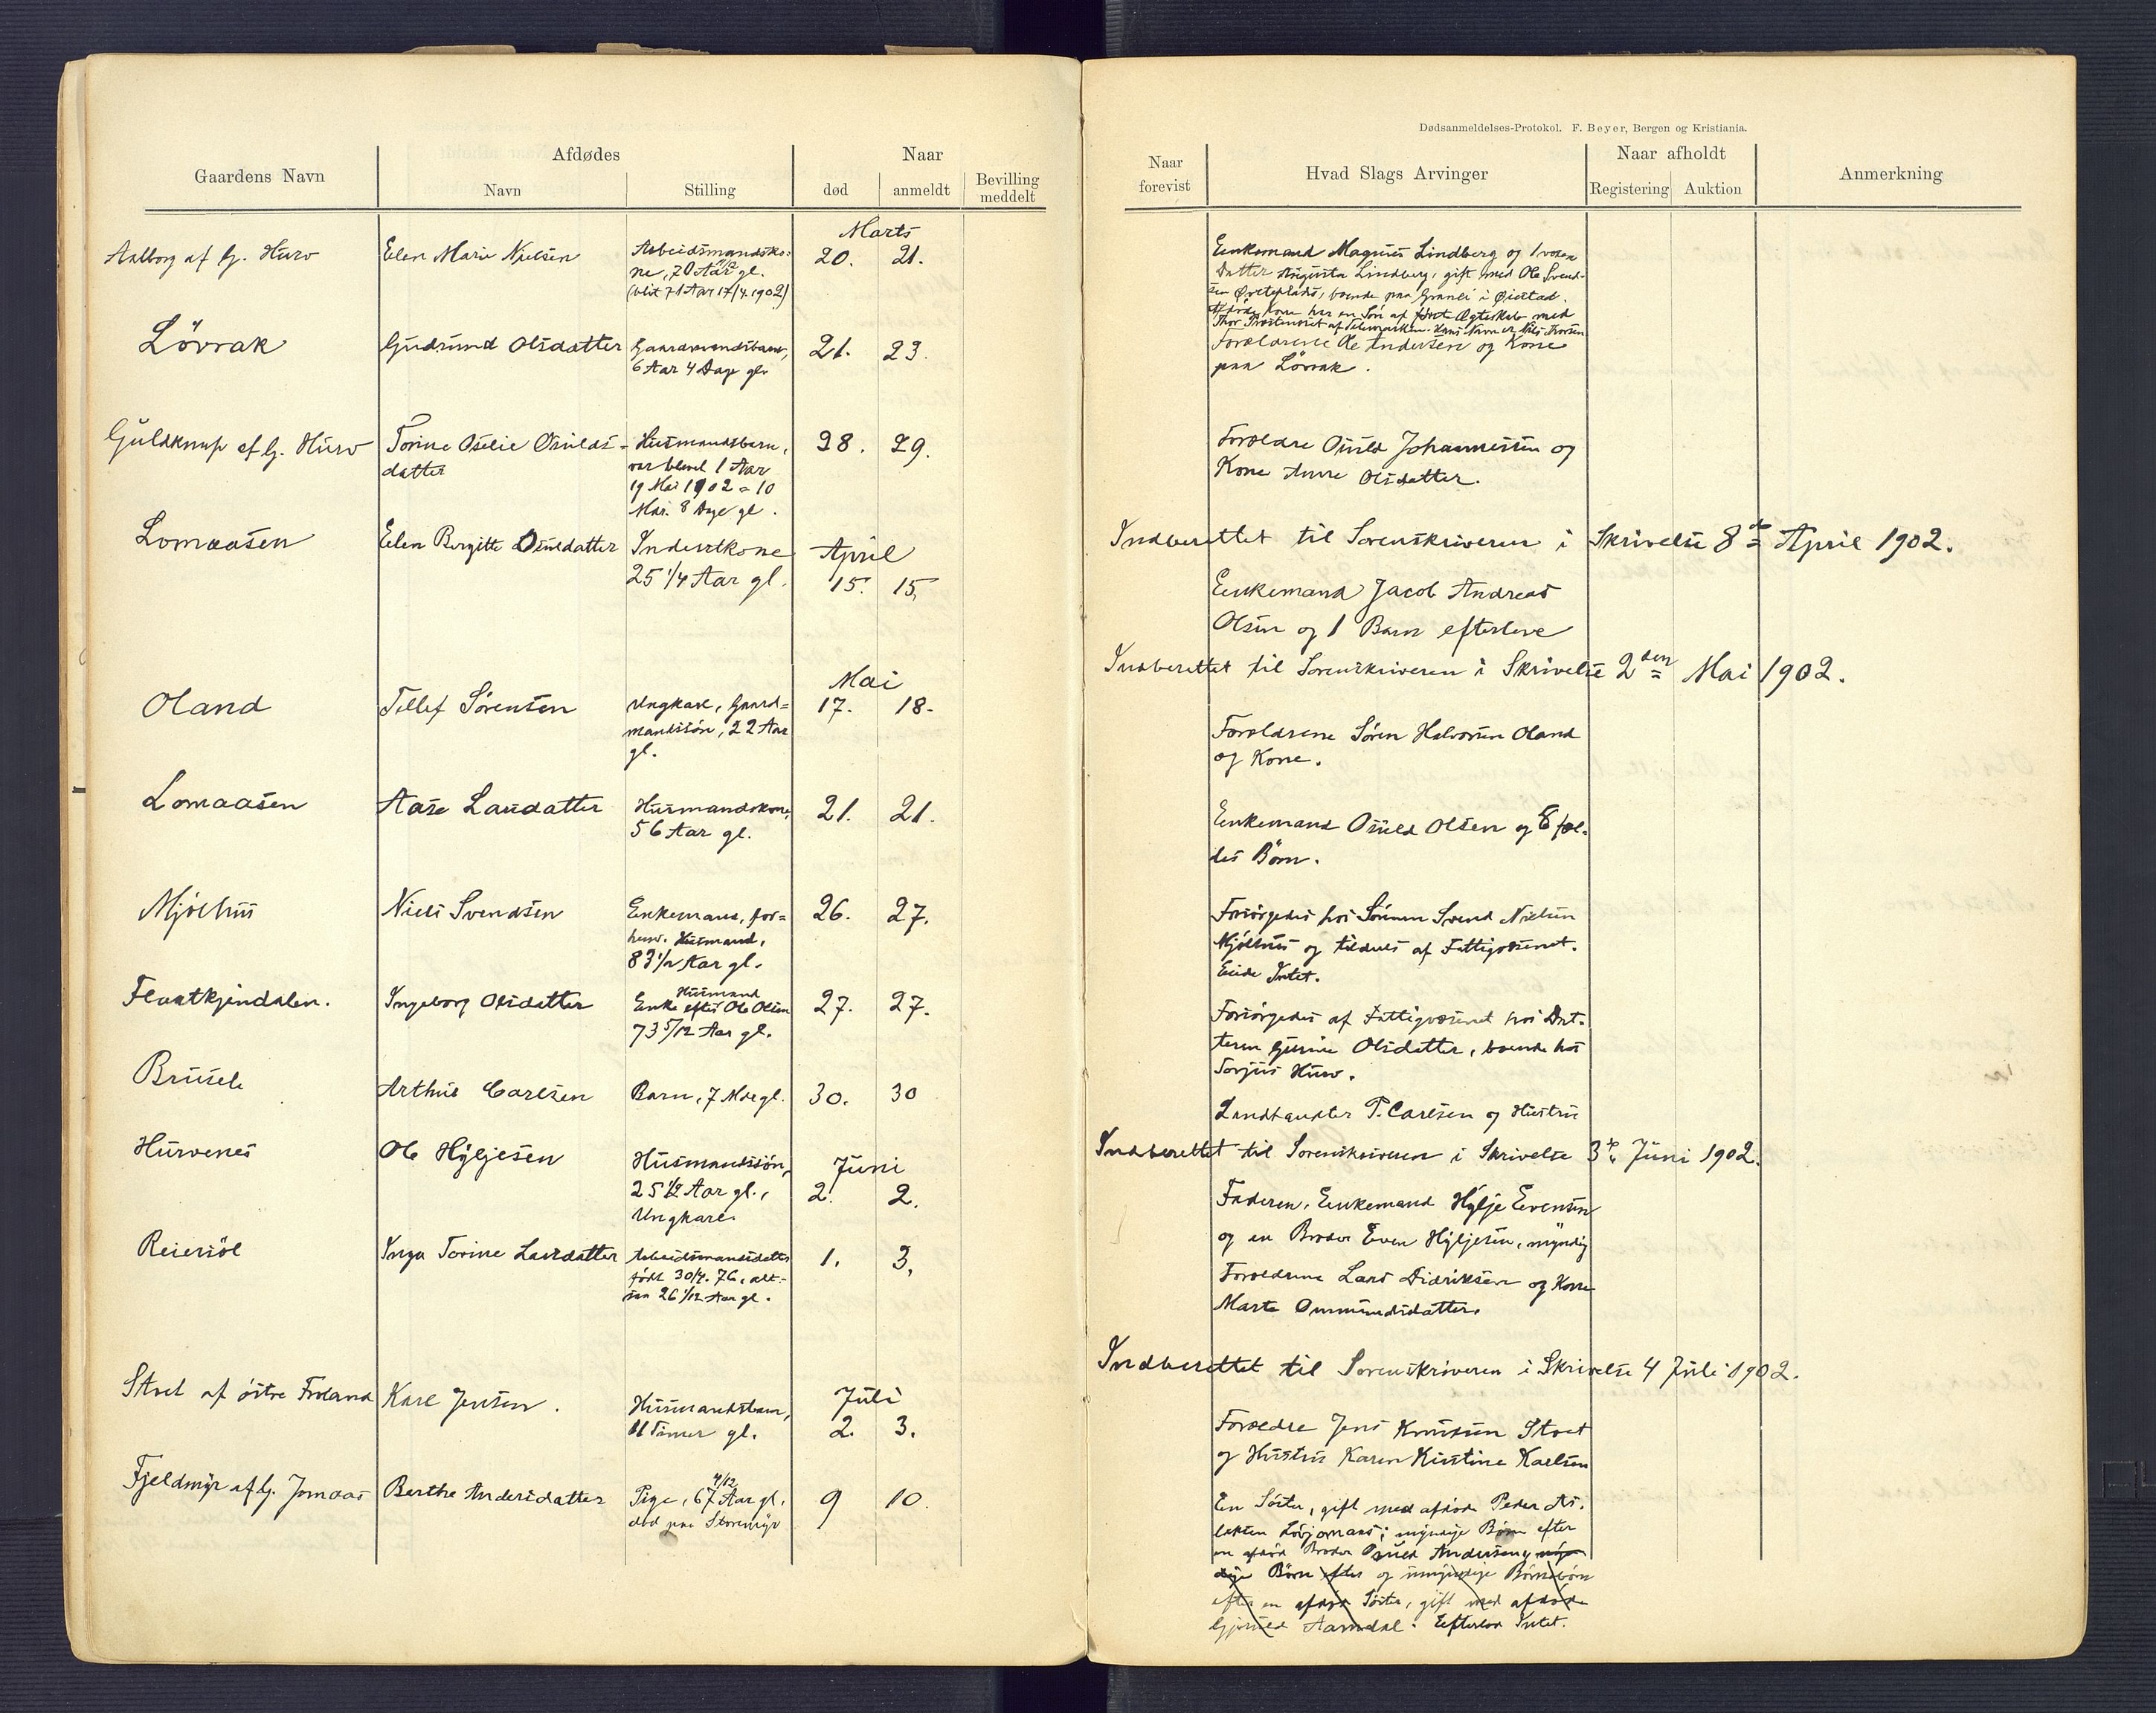 Dødsanmeldelses-Protokol. F. Beyer, Bergen og Kristiania.
Gaardens Navn
Afdødes
Navn
Stilling
Naar
død
anmeldt
Bevilling
meddelt
Naar
forevist
Hvad Slags Arvinger
Naar afholdt
Registering
Auktion
Anmerkning
Marts
Aalborg af G. Hurv
Elen Marie Nielsen
Arbeidsmandsko-
ne, 70 Aar gl.
(blit 71 Aar 17/4 1902)
20. 21.
Enkemand Magnus Lindberg og 1 voxen
Datter Augusta Lindberg, gift med Ole Svend-
sen, boende paa Granli i Øiestad.
Afdøde Kone har en Søn af første Ægteskab med
Thor af Telemarken. Hans Navn er Nils Thorsen
Løvrak
Gudrund Olsdatter
Gaardmandsbarn,
6 Aar 4 Dage gl.
21. 23.
Forældrene Ole Andersen og Kone
paa Løvrak.
Guldknap af G. Hurv
Torine Oselie Osulds-
datter
Husmandsbarn,
var blevet 1 Aar
19 Mai 1902 = 10
Mdr. 8 Dage gl.
28. 29.
Forældre Osuld Johannessen og
Kone Anne Olsdatter.
Indberettet til Sorenskriveren i Skrivelse 8de April 1902.
Lomaasen
Elen Bergitte Osuldatter
Inderstkone
25 1/4 Aar gl.
April
15. 15.
Enkemand Jacob Andreas
Olsen og 1 Barn efterleve
Indberettet til Sorenskriveren i Skrivelse 2den Mai 1902.
Mai
Oland
Tellef Sørensen
Ungkarl, Gaard=
mandssøn, 22 Aar
gl.
17. 18.
Forældrene Søren Halvorsen Oland
og Kone.
Lomaasen
Aase Larsdatter
Husmandskone,
56 Aar gl.
21. 21.
Enkemand Osuld Olsen og 8 fæl-
les Børn.
Mjølhus
Niels Svendsen
Enkemand, for=
henv. Husmand,
83 1/2 Aar gl.
26. 27.
Forsørgedes hos Sønnen Svend Nielsen
Mjølhus og tildels af Fattigvæsenet.
Eiede Intet.
Flaatkjendalen.
Ingeborg Olsdatter
Husmand
Enke efter Ole Olsen
73 5/12 Aar gl.
27. 27.
Forsørgedes af Fattigvæsenet hos Dat-
teren Gurine Olsdatter, boende hos
Torjus Hurv.
Brusele
Arthur Carlsen
Barn, 7 Mdr gl.
30. 30
Landhandler T. Carlsen og Hustru
Indberettet til Sorenskriveren i Skrivelse 3die Juni 1902.
Hurvenes
Ole Hyljesen
Husmandssøn,
25 1/2 Aar gl.,
Ungkarl.
Juni
2. 2.
Faderen, Enkemand Hylje Evensen
og en Broder Even Hyljesen, myndig
Reiersøl
Inga Torine Larsdatter
Arbeidsmandsdatter
født 30/4. 76, alt-
saa 26 1/12 Aar gl.
1. 3.
Forældrene Lars Didriksen og Kone
Marte Ommundsdatter.
Indberettet til Sorenskriveren i Skrivelse 4 Juli 1902.
Stoet af østre Froland
Karl Jensen.
Husmandsbarn,
11 Timer gl.
Juli
2. 3.
Forældre Jens Knudsen Stoet
og Hustru Karen Kirstine Karlsen
Fjeldmyr af G. Jomaas
Berthe Andersdatter
Pige, 67 4/12 Aar gl.
død paa Storemyr
9 10.
En Søster, gift med afdøde Peder As-
laksen; myndige Børn efter
en afdød Broder Osuld Andersen
Børn efter og umyndige Børnebørn
efter en afdød Søster, gift med afdøde
Aamdal. Efterlod Intet.